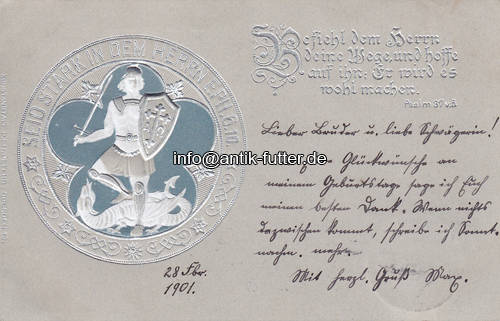 SEID STARK IN DEM HERRN EPH. 6.10.
Befiehl dem Herrn
deine Wege, und hoffe
auf ihn: Er wird es
wohl machen.
Psalm 37 v.5.
info@antik-futter.de
Lieber Bruder u. liebe Schwägerin!
Glückwünsche an
meinem Geburtstage sage ich Euch
meinen besten Dank. Wenn nichts
dazwischen kommt, schreibe ich Sonnt.
nachm. mehr.
Mit herzl. Gruß Max.
28 Fbr.
1901.